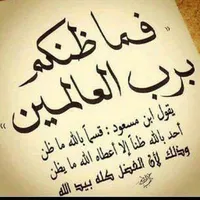 "فما ظنكم
برب العالمين"
يقول ابن مسعود : قسماً بالله ما ظن
أحد بالله ظناً إلا أعطاه الله ما يظن
وذلك لأن الفضل كله بيد الله